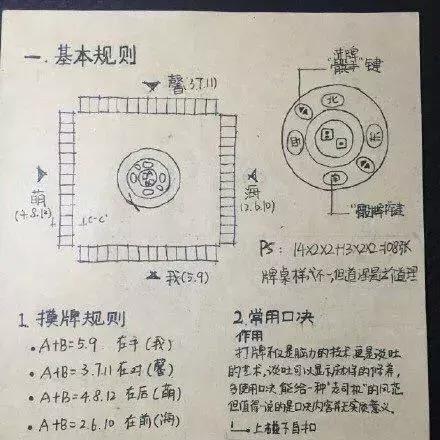 一.基本规则
馨(3.7.11)
萌
(4.8.12)
海
(2.6.10)
我(5.9)
洗牌
"骰子"键
北
西
东
南
PS: 14×2×2+13×2×2=108张
牌桌样式不一,但道理是这个道理
1. 摸牌规则
• A+B=5.9 在手(我)
• A+B=3.7.11 在对(馨)
• A+B=4.8.12 在后(萌)
• A+B=2.6.10 在前(海)
2.常用口决
作用
打牌不仅是脑力的技术更是谈吐
的艺术,谈吐可以显示你的修养,
多使用口决能给一种"老司机"的风范
但值得一说的是口决内容并无实质意义.
上碰下自扣